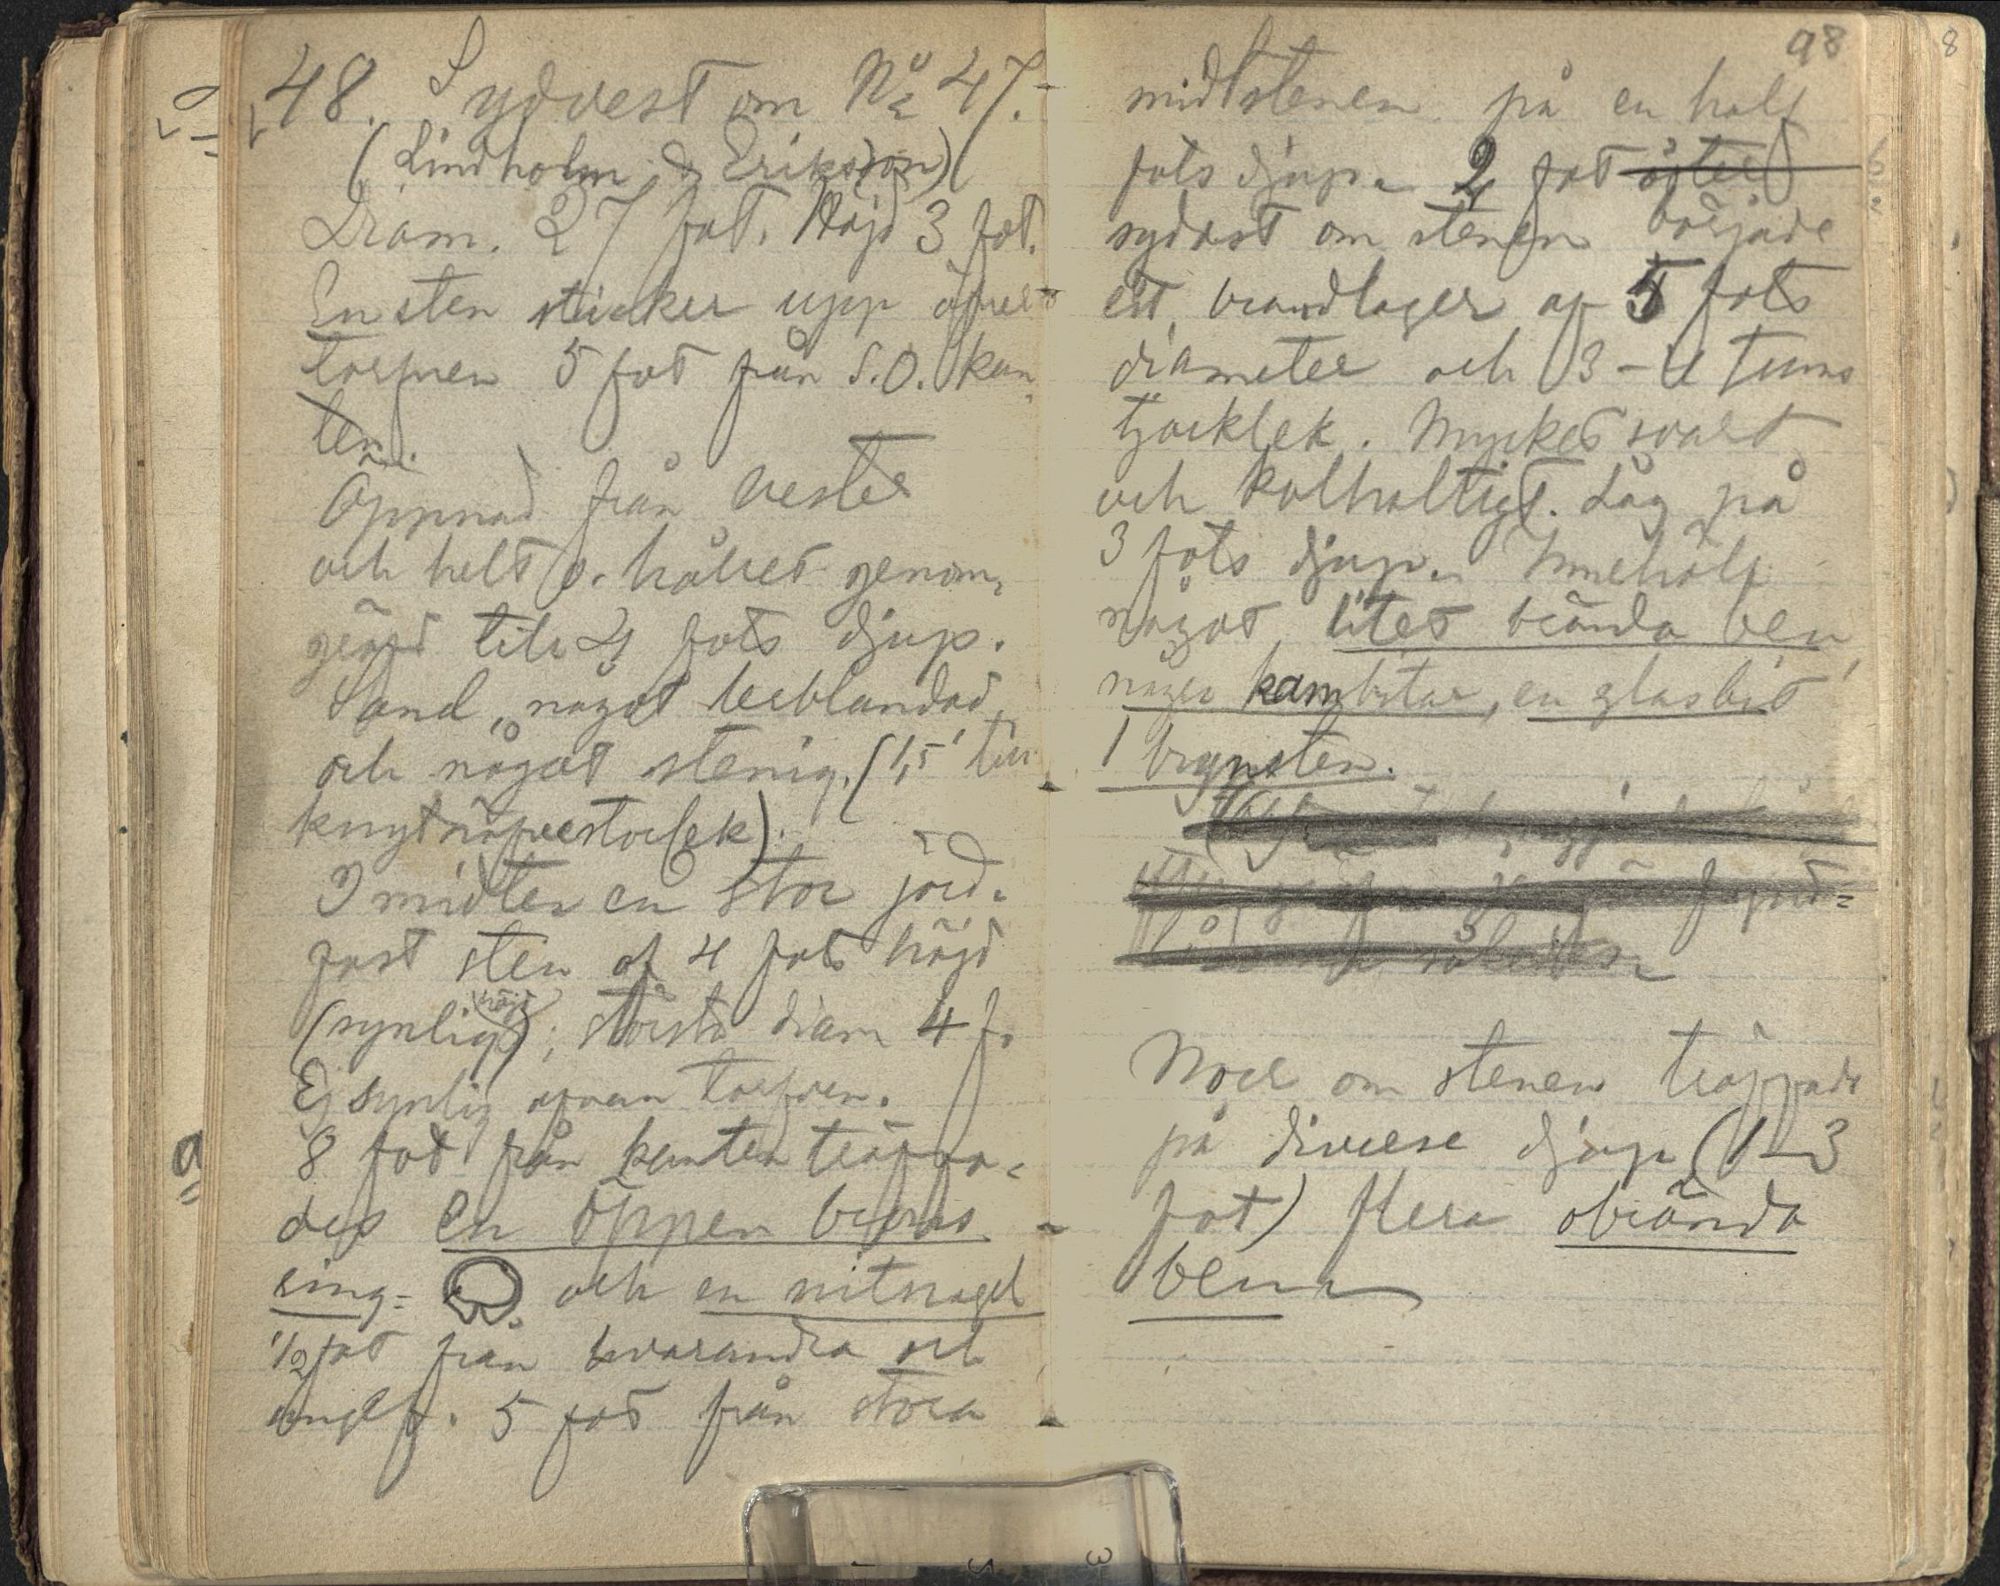 48. Sydvest om No 47.
(Lindholm & Eriksson)
Diam. 27 fot. Höjd 3 fot.
En sten sticker upp öfver
torfven 5 fot från S.O. kan-
ten.
Öppnad från vester
och helt o. hållet genom-
gräfd till 4 fots djup.
Sand, något lerblandad
och något stenig. (1,5' till
knytnäfvestorlek).
I midten en stor jord-
fast sten af 4 fots höjd
(synlig höjd); största diam 4 f.
Ej synlig ofvan torfven.
8 fot från kanten träffa-
des en öppen brons
ring- och en nitnagel
1/2 fot från hvarandra och
ungef. 5 fot från stora
98
midtstenen på en half
fots djup. 2 fot öster
sydost om stenen började
ett brandlager af 5 fots
diameter och 3-4 tums
tjocklek. Mycket svart
och kolhaltigt. Låg på
3 fots djup. Innehöll
något litet brända ben,
några kambitar, en glasbit
1 brynsten.
Norr om stenen träffade
på diverse djup (1-3
fot) flera obrända
ben
8